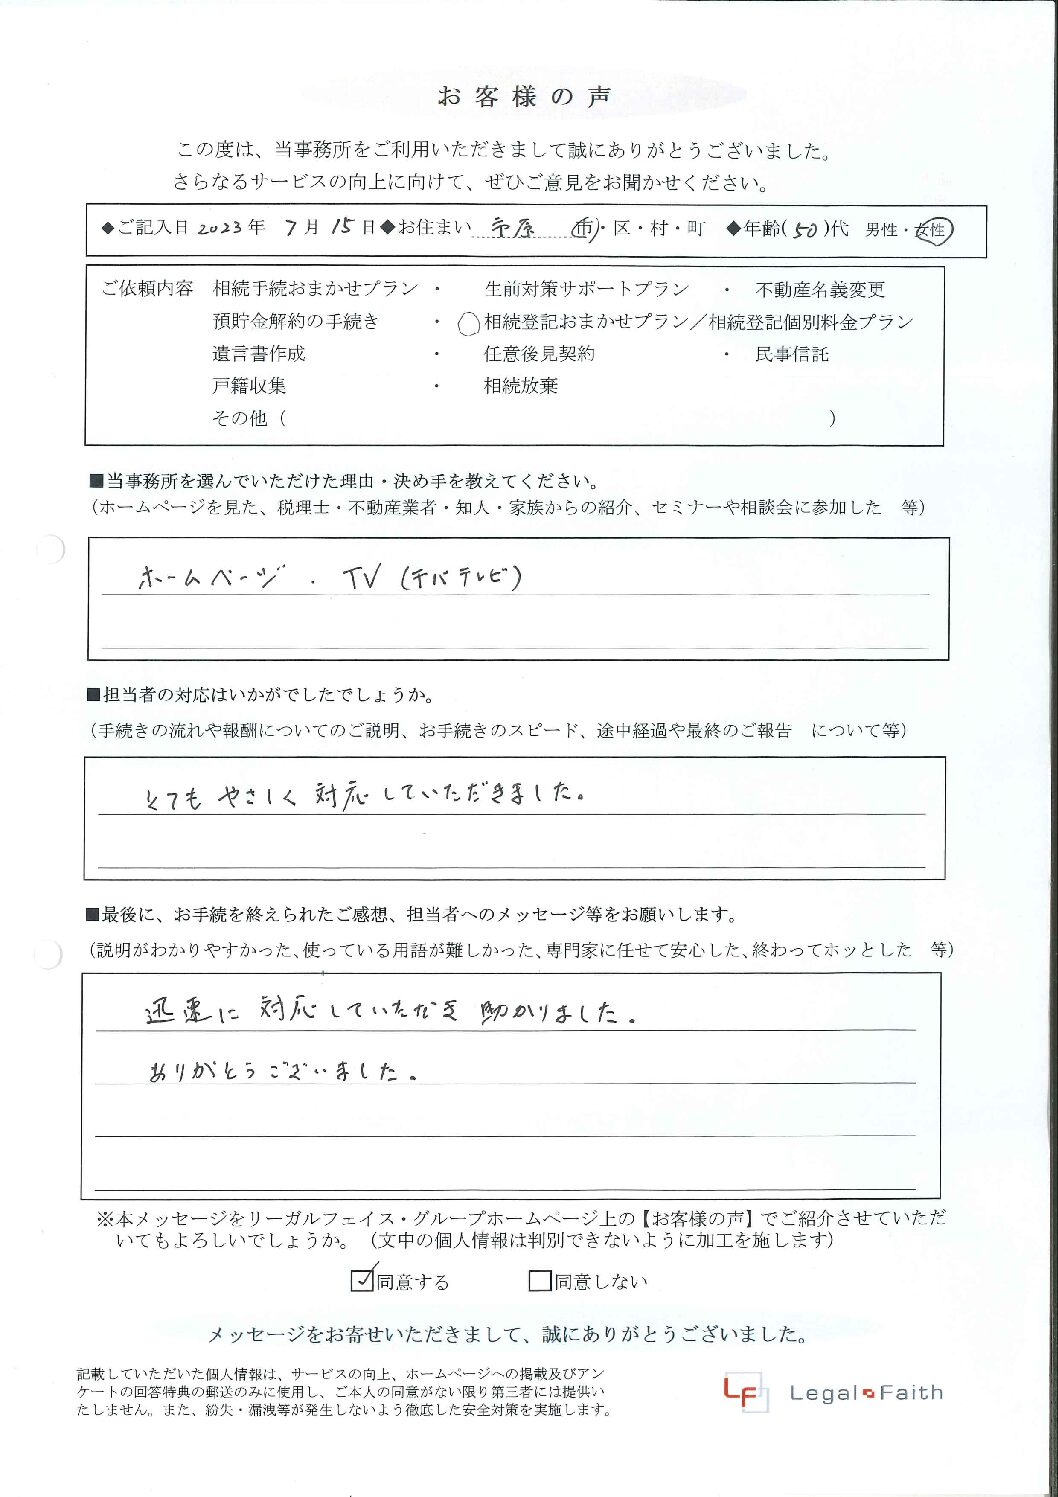 お客様の声
この度は、当事務所をご利用いただきまして誠にありがとうございました。
さらなるサービスの向上に向けて、ぜひご意見をお聞かせください。
◆ご記入日 2023年 7月 15日◆お住まい 市原 市・区・村・町 ◆年齢(50)代 男性・女性
ご依頼内容 相続手続おまかせプラン ・ 生前対策サポートプラン ・ 不動産名義変更
預貯金解約の手続き ・ 相続登記おまかせプラン／相続登記個別料金プラン
遺言書作成 ・ 任意後見契約 ・ 民事信託
戸籍収集 ・ 相続放棄
その他（ ）
■当事務所を選んでいただけた理由・決め手を教えてください。
（ホームページを見た、税理士・不動産業者・知人・家族からの紹介、セミナーや相談会に参加した　等）
ホームページ . TV (チバテレビ)
■担当者の対応はいかがでしたでしょうか。
（手続きの流れや報酬についてのご説明、お手続きのスピード、途中経過や最終のご報告　について等）
とてもやさしく対応していただきました。
■最後に、お手続を終えられたご感想、担当者へのメッセージ等をお願いします。
（説明がわかりやすかった、使っている用語が難しかった、専門家に任せて安心した、終わってホッとした　等）
迅速に対応していただき助かりました。
ありがとうございました。
※本メッセージをリーガルフェイス・グループホームページ上の【お客様の声】でご紹介させていただ
いてもよろしいでしょうか。（文中の個人情報は判別できないように加工を施します）
☑同意する □同意しない
メッセージをお寄せいただきまして、誠にありがとうございました。
記載していただいた個人情報は、サービスの向上、ホームページへの掲載及びアン
ケートの回答特典の郵送のみに使用し、ご本人の同意がない限り第三者には提供い
たしません。また、紛失・漏洩等が発生しないよう徹底した安全対策を実施します。
LF Legal Faith